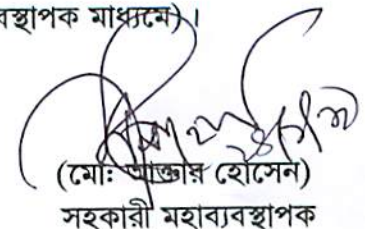 বস্থাপক মাধ্যমে)।
(মোঃ আক্তার হোসেন)
সহকারী মহাব্যবস্থাপক